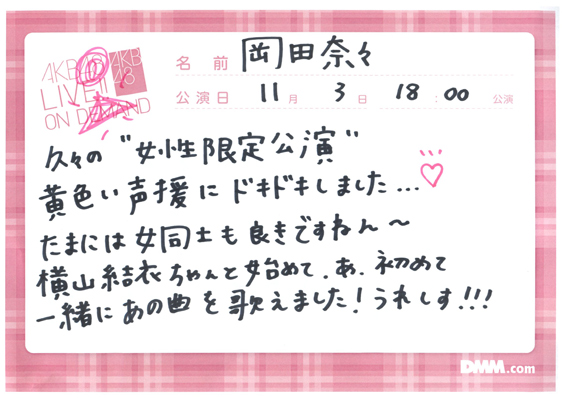 AKB48
LIVE!!
ON DEMAND
AKB
48
名前 岡田奈々
公演日 11月 3日 18:00 公演
久々の"女性限定公演"
黄色い声援にドキドキしました...♡
たまには女同士も良きですねん〜
横山結衣ちゃんと始めて.あ.初めて
一緒にあの曲を歌えました!うれしす!!!
DMM.com